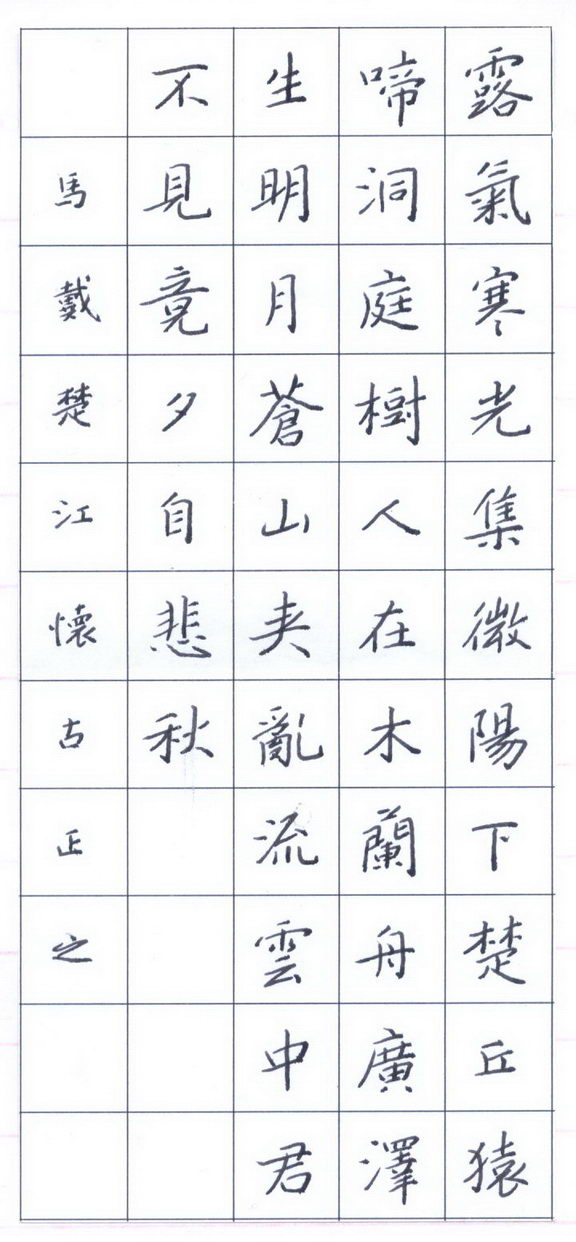 露氣寒光集微陽下楚丘猿
啼洞庭樹人在木蘭舟廣澤
生明月蒼山夾亂流雲中君
不見竟夕自悲秋
馬戴楚江懷古正之